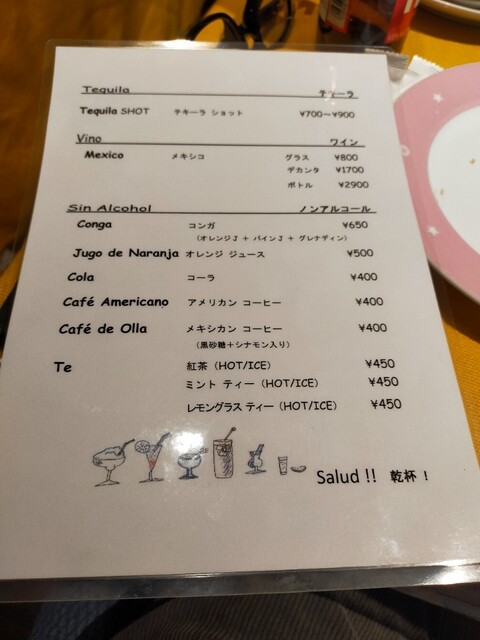 Tequila テキーラ
Tequila SHOT テキーラ ショット ¥700～¥900
Vino ワイン
Mexico メキシコ グラス ¥800
デカンタ ¥1700
ボトル ¥2900
Sin Alcohol ノンアルコール
Conga コンガ ¥650
(オレンジJ + パインJ + グレナディン)
Jugo de Naranja オレンジ ジュース ¥500
Cola コーラ ¥400
Café Americano アメリカン コーヒー ¥400
Café de Olla メキシカン コーヒー ¥400
(黒砂糖+シナモン入り)
Te 紅茶 (HOT/ICE) ¥450
ミント ティー (HOT/ICE) ¥450
レモングラス ティー (HOT/ICE) ¥450
Salud !! 乾杯 !